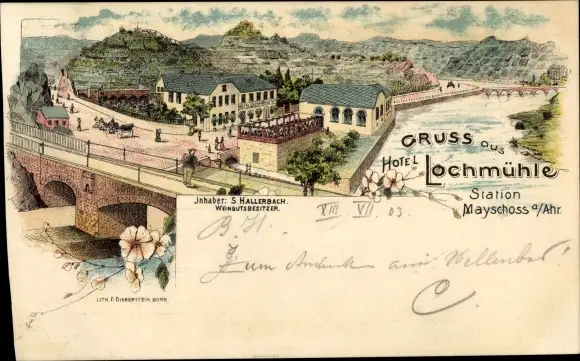 GRUSS aus
HOTEL Lochmühle
Station
Mayschoss a/Ahr.
Jnhaber: S. HALLERBACH.
WEINGUTSBESITZER.
B. H. XIII. VII. 03.
Zum Andenk
C.
LITH. F. BIEBERSTEIN, BONN.